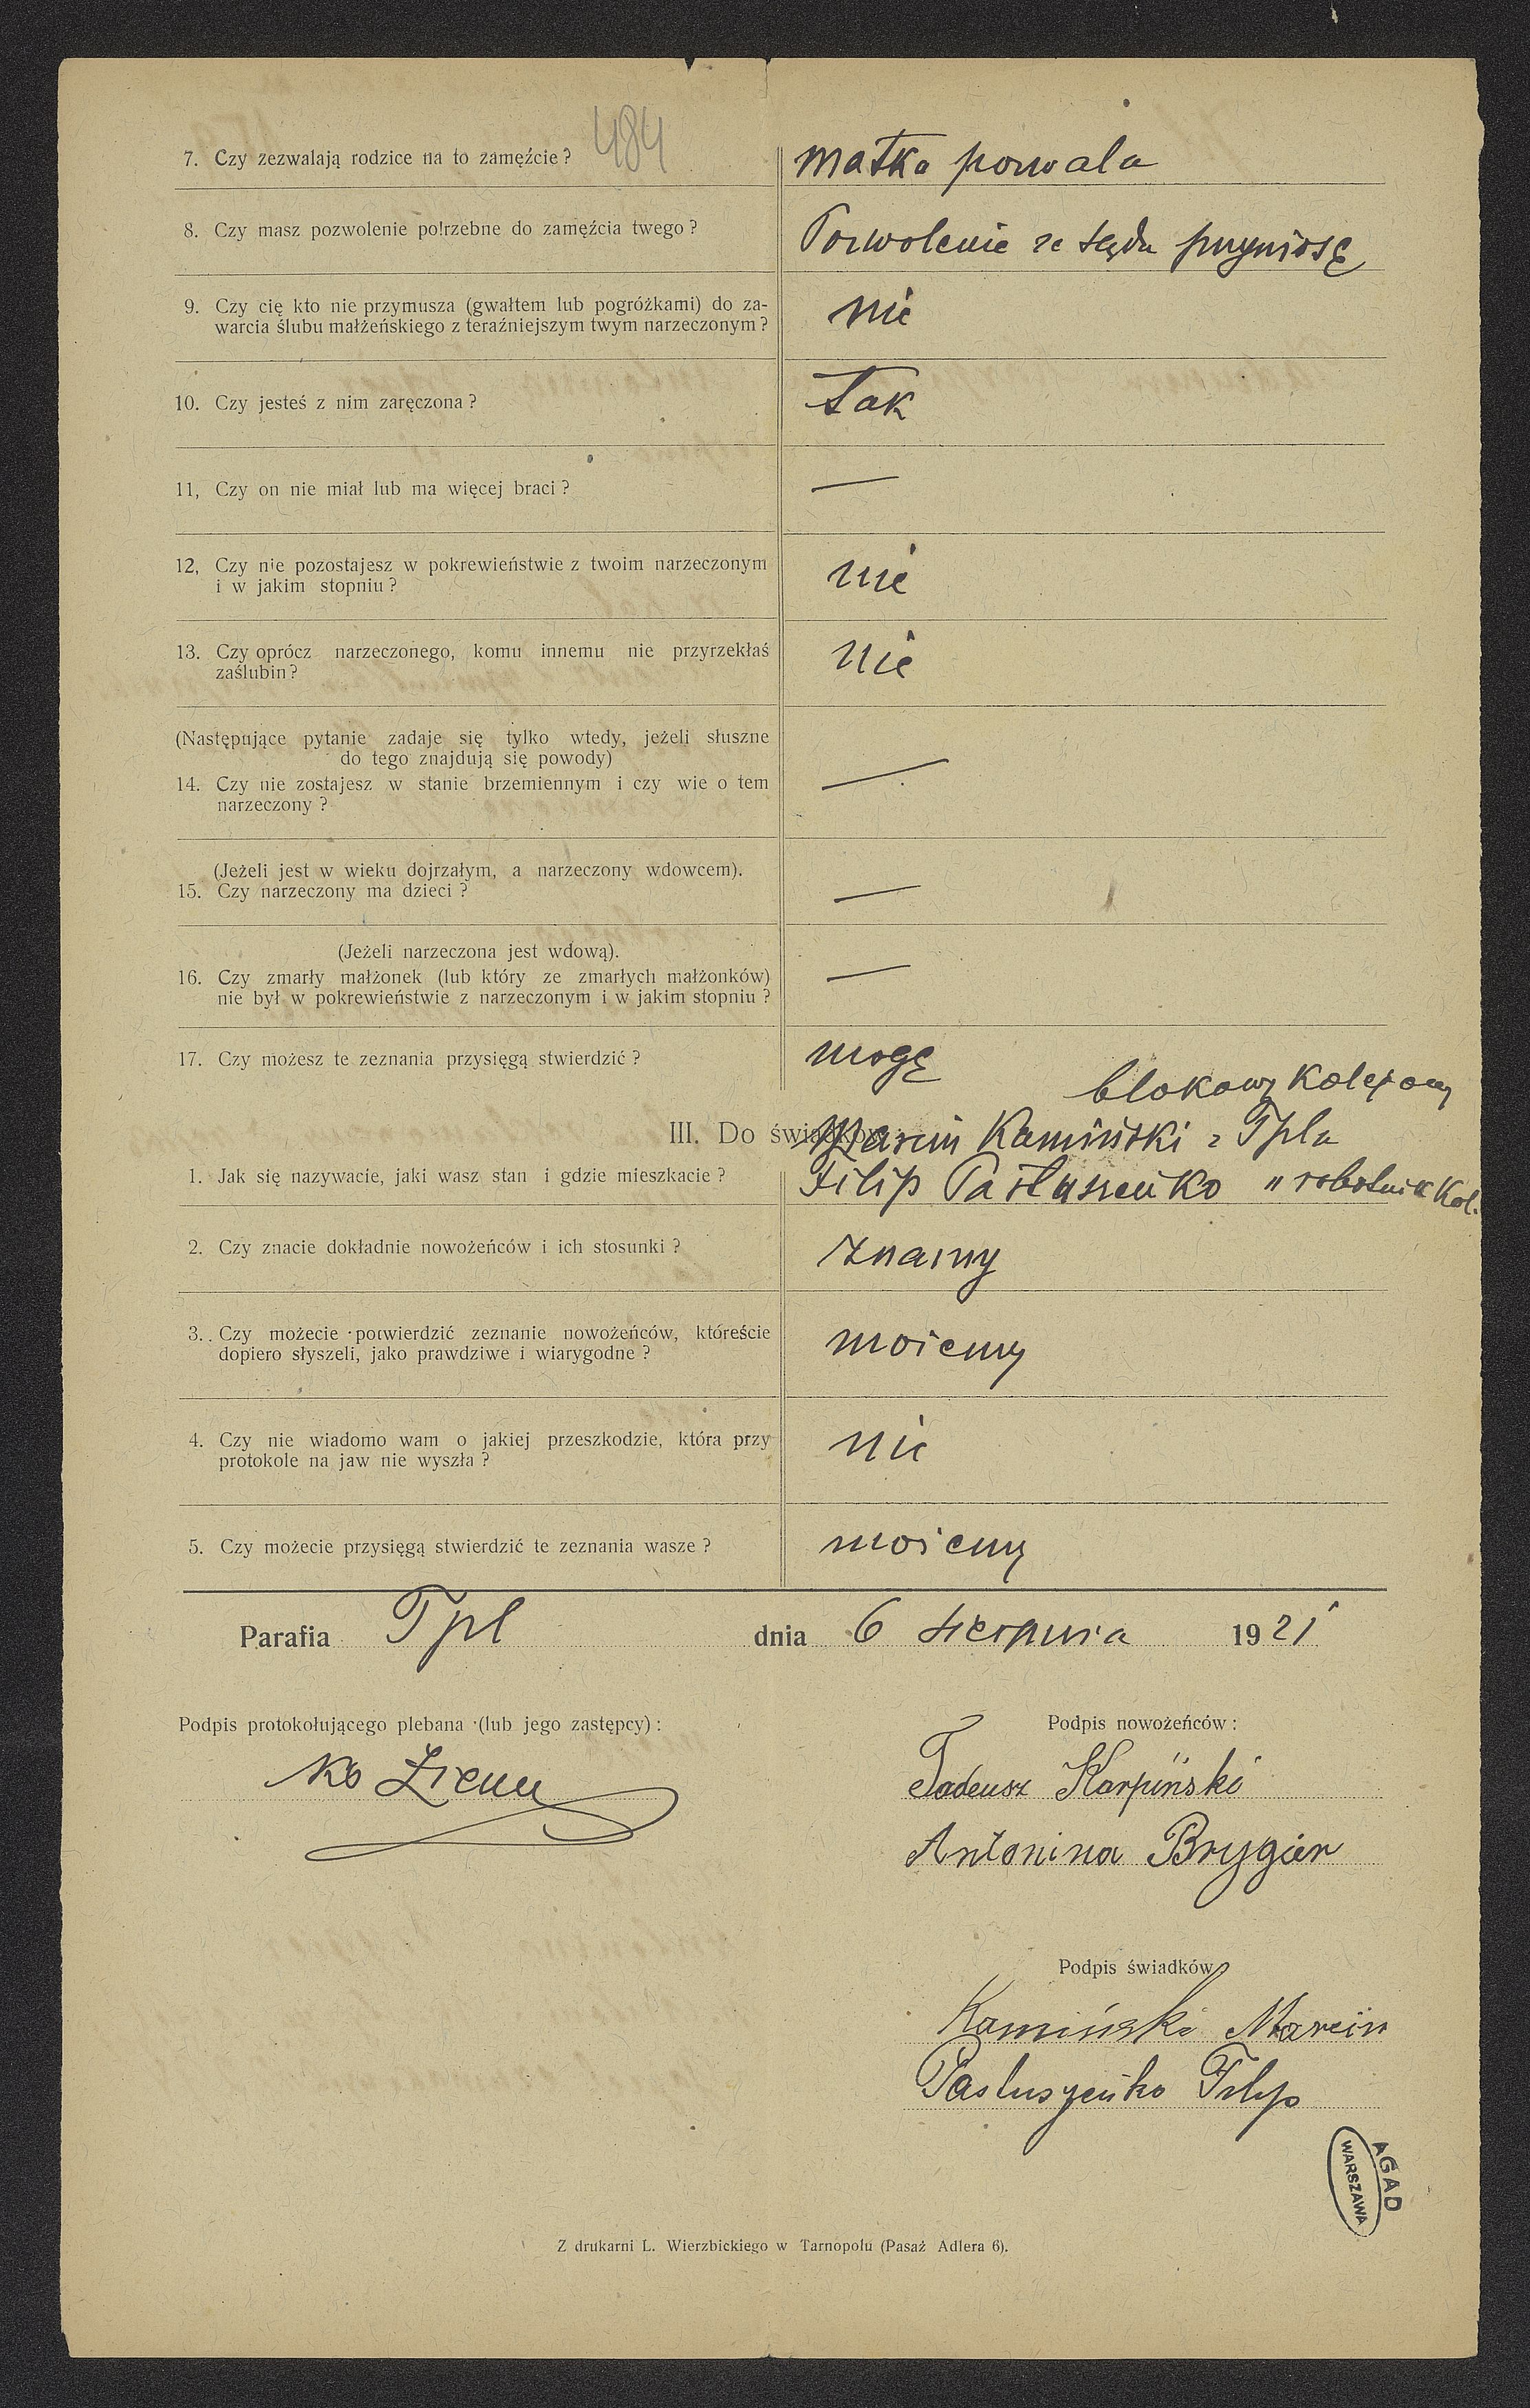 484
7. Czy zezwalają rodzice na to zamęźcie?
matka pozwala
8. Czy masz pozwolenie potrzebne do zamęźcia twego?
Pozwolenie ze sądu przyniosę
9. Czy cię kto nie przymusza (gwałtem lub pogróżkami) do za-
warcia ślubu małżeńskiego z teraźniejszym twym narzeczonym?
nie
10. Czy jesteś z nim zaręczona?
tak
11, Czy on nie miał lub ma więcej braci?
—
12, Czy nie pozostajesz w pokrewieństwie z twoim narzeczonym
i w jakim stopniu?
nie
13. Czy oprócz narzeczonego, komu innemu nie przyrzekłaś
zaślubin?
nie
(Następujące pytanie zadaje się tylko wtedy, jeżeli słuszne
do tego znajdują się powody)
14. Czy nie zostajesz w stanie brzemiennym i czy wie o tem
narzeczony?
—
(Jeżeli jest w wieku dojrzałym, a narzeczony wdowcem).
15. Czy narzeczony ma dzieci?
—
(Jeżeli narzeczona jest wdową).
16. Czy zmarły małżonek (lub który ze zmarłych małżonków)
nie był w pokrewieństwie z narzeczonym i w jakim stopniu?
—
17. Czy możesz te zeznania przysięgą stwierdzić?
mogę
blokowy kolejowy
III. Do świadków
Marcin Kamiński z Tpla
1. Jak się nazywacie, jaki wasz stan i gdzie mieszkacie?
Filip Pastuszeńko " robotnik kol.
2. Czy znacie dokładnie nowożeńców i ich stosunki?
znamy
3. Czy możecie potwierdzić zeznanie nowożeńców, któreście
dopiero słyszeli, jako prawdziwe i wiarygodne?
możemy
4. Czy nie wiadomo wam o jakiej przeszkodzie, która przy
protokole na jaw nie wyszła?
nie
5. Czy możecie przysięgą stwierdzić te zeznania wasze?
możemy
Parafia Tpl dnia 6 sierpnia 1921
Podpis protokołującego plebana (lub jego zastępcy):
Podpis nowożeńców:
Tadeusz Karpiński
Antonina Brygier
Podpis świadków
Kamiński Marcin
Pastuszeńko Filip
AGAD
WARSZAWA
Z drukarni L. Wierzbickiego w Tarnopolu (Pasaż Adlera 6).